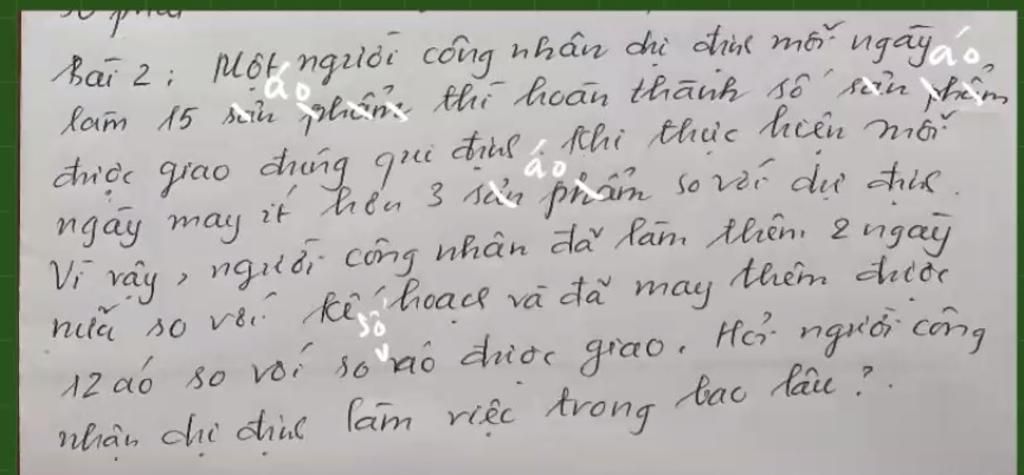 Bài 2: Một người công nhân dự định mỗi ngày áo
làm 15 sản phẩm áo thì hoàn thành số sản phẩm
được giao đúng qui định. Khi thực hiện mỗi
ngày may ít hơn 3 sản phẩm áo so với dự định.
Vì vậy, người công nhân đã làm thêm 2 ngày
nữa so với kế hoạch và đã may thêm được
12 áo so với số áo được giao. Hỏi người công
nhận dự định làm việc trong bao lâu?.